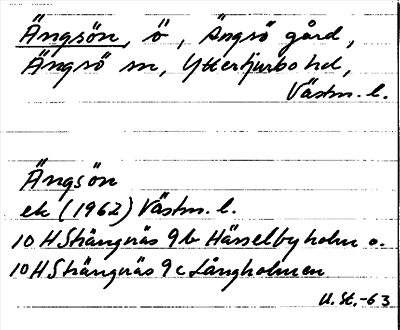 Ängsön, ö, Ängsö gård,
Ängsö sn, Ytterjurbo hd,
Västm. l.
Ängsön
ek (1962) Västm. l.
10 H Strängnäs 9b Hässelbyholm o.
10 H Strängnäs 9c Långholmen
U. St. -63